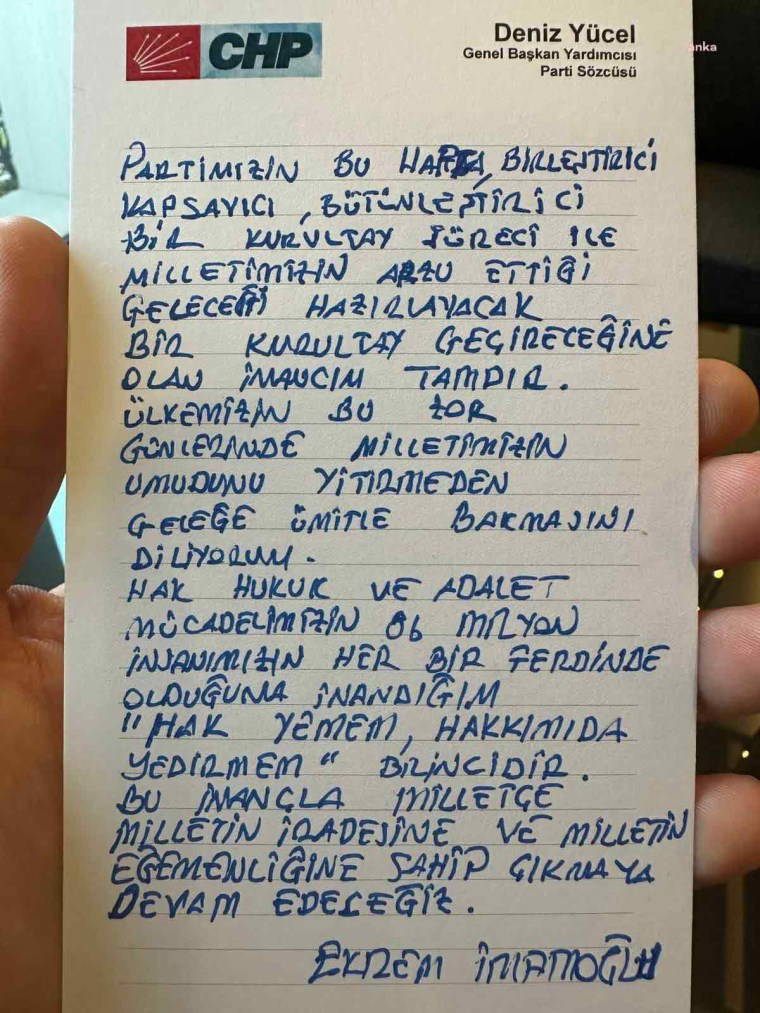 CHP
Deniz Yücel
Genel Başkan Yardımcısı
Parti Sözcüsü
anka
PARTİMİZİN BU HAFTA, BİRLEŞTİRİCİ
KAPSAYICI, BÜTÜNLEŞTİRİCİ
BİR KURULTAY SÜRECİ İLE
MİLLETİMİZİN ARZU ETTİĞİ
GELECEĞİ HAZIRLAYACAK
BİR KURULTAY GEÇİRECEĞİNE
OLAN İNANCIM TAMDIR.
ÜLKEMİZİN BU ZOR
GÜNLERİNDE MİLLETİMİZİN
UMUDUNU YİTİRMEDEN
GELEĞE ÜMİTLE BAKMASINI
DİLİYORUM.
HAK HUKUK VE ADALET
MÜCADELİMİZİN 86 MİLYON
İNSANIMIZIN HER BİR FERDİNDE
OLDUĞUNA İNANDIĞIM
"HAK YEMEM, HAKKIMIDA
YEDİRMEM" BİRİNCİDİR.
BU İNANÇLA MİLLETÇE
MİLLETİN İRADESİNE VE MİLLETİN
EĞEMENLİĞİNE SAHİP ÇIKMAYA
DEVAM EDECEĞİZ.
EKREM İMAMOĞLU